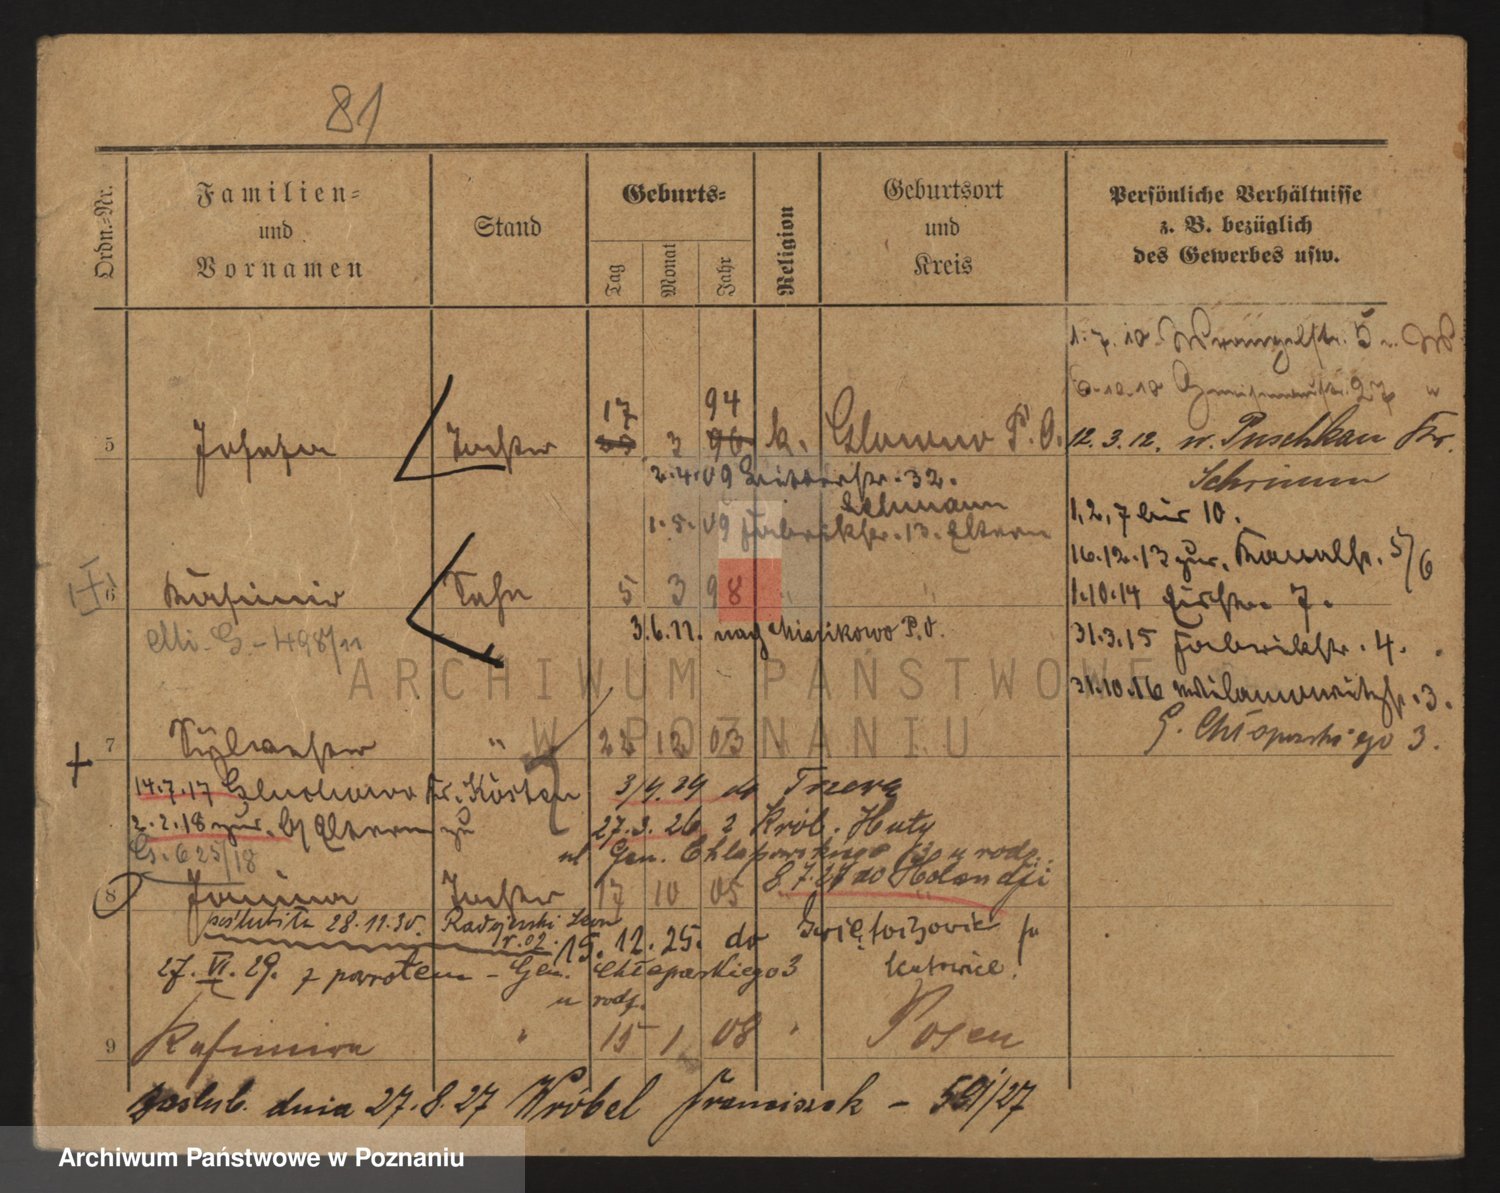 81
Ordn.-Nr.
Familien-
und
Vornamen
Stand
Geburts-
Tag
Monat
Jahr
Religion
Geburtsort
und
Kreis
Persönliche Verhältnisse
z. B. bezüglich
des Gewerbes usw.
1.7.10 Wrangelstr. 5
6.10.10 Gneisenaustr. 27
17 94
5 Josefa Tochter 3 96 k. P. O.
12.3.12. n. Puschkau Kr.
Schrimm
2.4.09 32.
Lehmann
1.5.09 Fabrikstr. 13. Eltern
1,2,7 bis 10.
16.12.13 zur. Kanalstr. 5/6
6 Kasimir Sohn 5 3 98 " "
1.10.14 7.
498/11
3.6.11. nach P. O.
31.3.15 Fabrikstr. 4.
31.10.16 3.
G. Chłapowskiego 3.
7 Sylvester " 22 12 03
14.7.17 Kr. Kosten
3/4.24 do
2.2.18 zur. Eltern
27.3.26 z Król. Huty
ul Gen. Chłapowskiego 3 u rodz.
625/18
8.7.27 do Holandji
8 Janina Tochter 17 10 05
poślubiła 28.11.30. Leon
r. 02.
15.12.25. do Świętochowic
27.VI.29. z powrotem - Gen. Chłapowskiego 3
Katowice.
u rodz.
9 Kasimira " 15 1 08 " Posen
poślub. dnia 27.8.27 Wróbel Franciszek - 591/27
ARCHIWUM PAŃSTWOWE
W POZNANIU
Archiwum Państwowe w Poznaniu